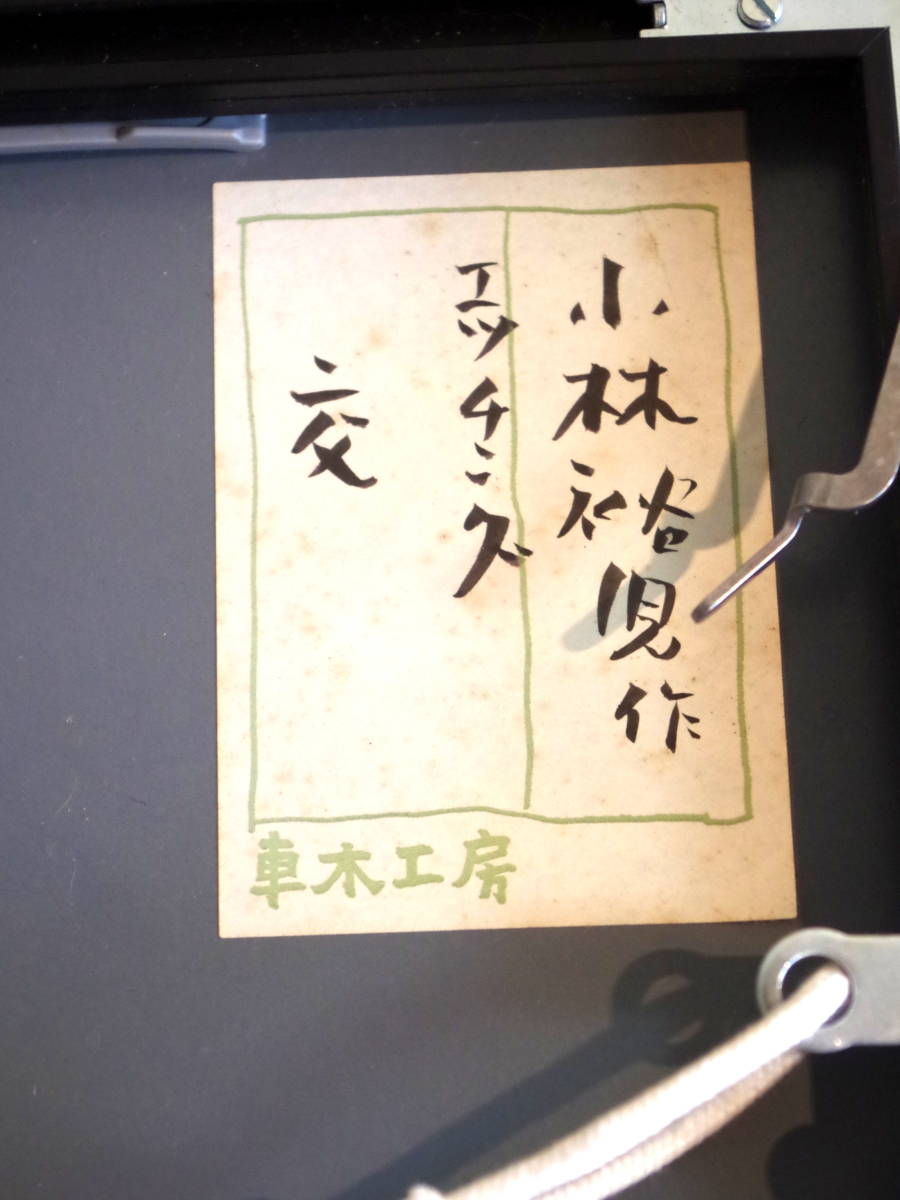 小林裕児作
エッチング
交
車木工房